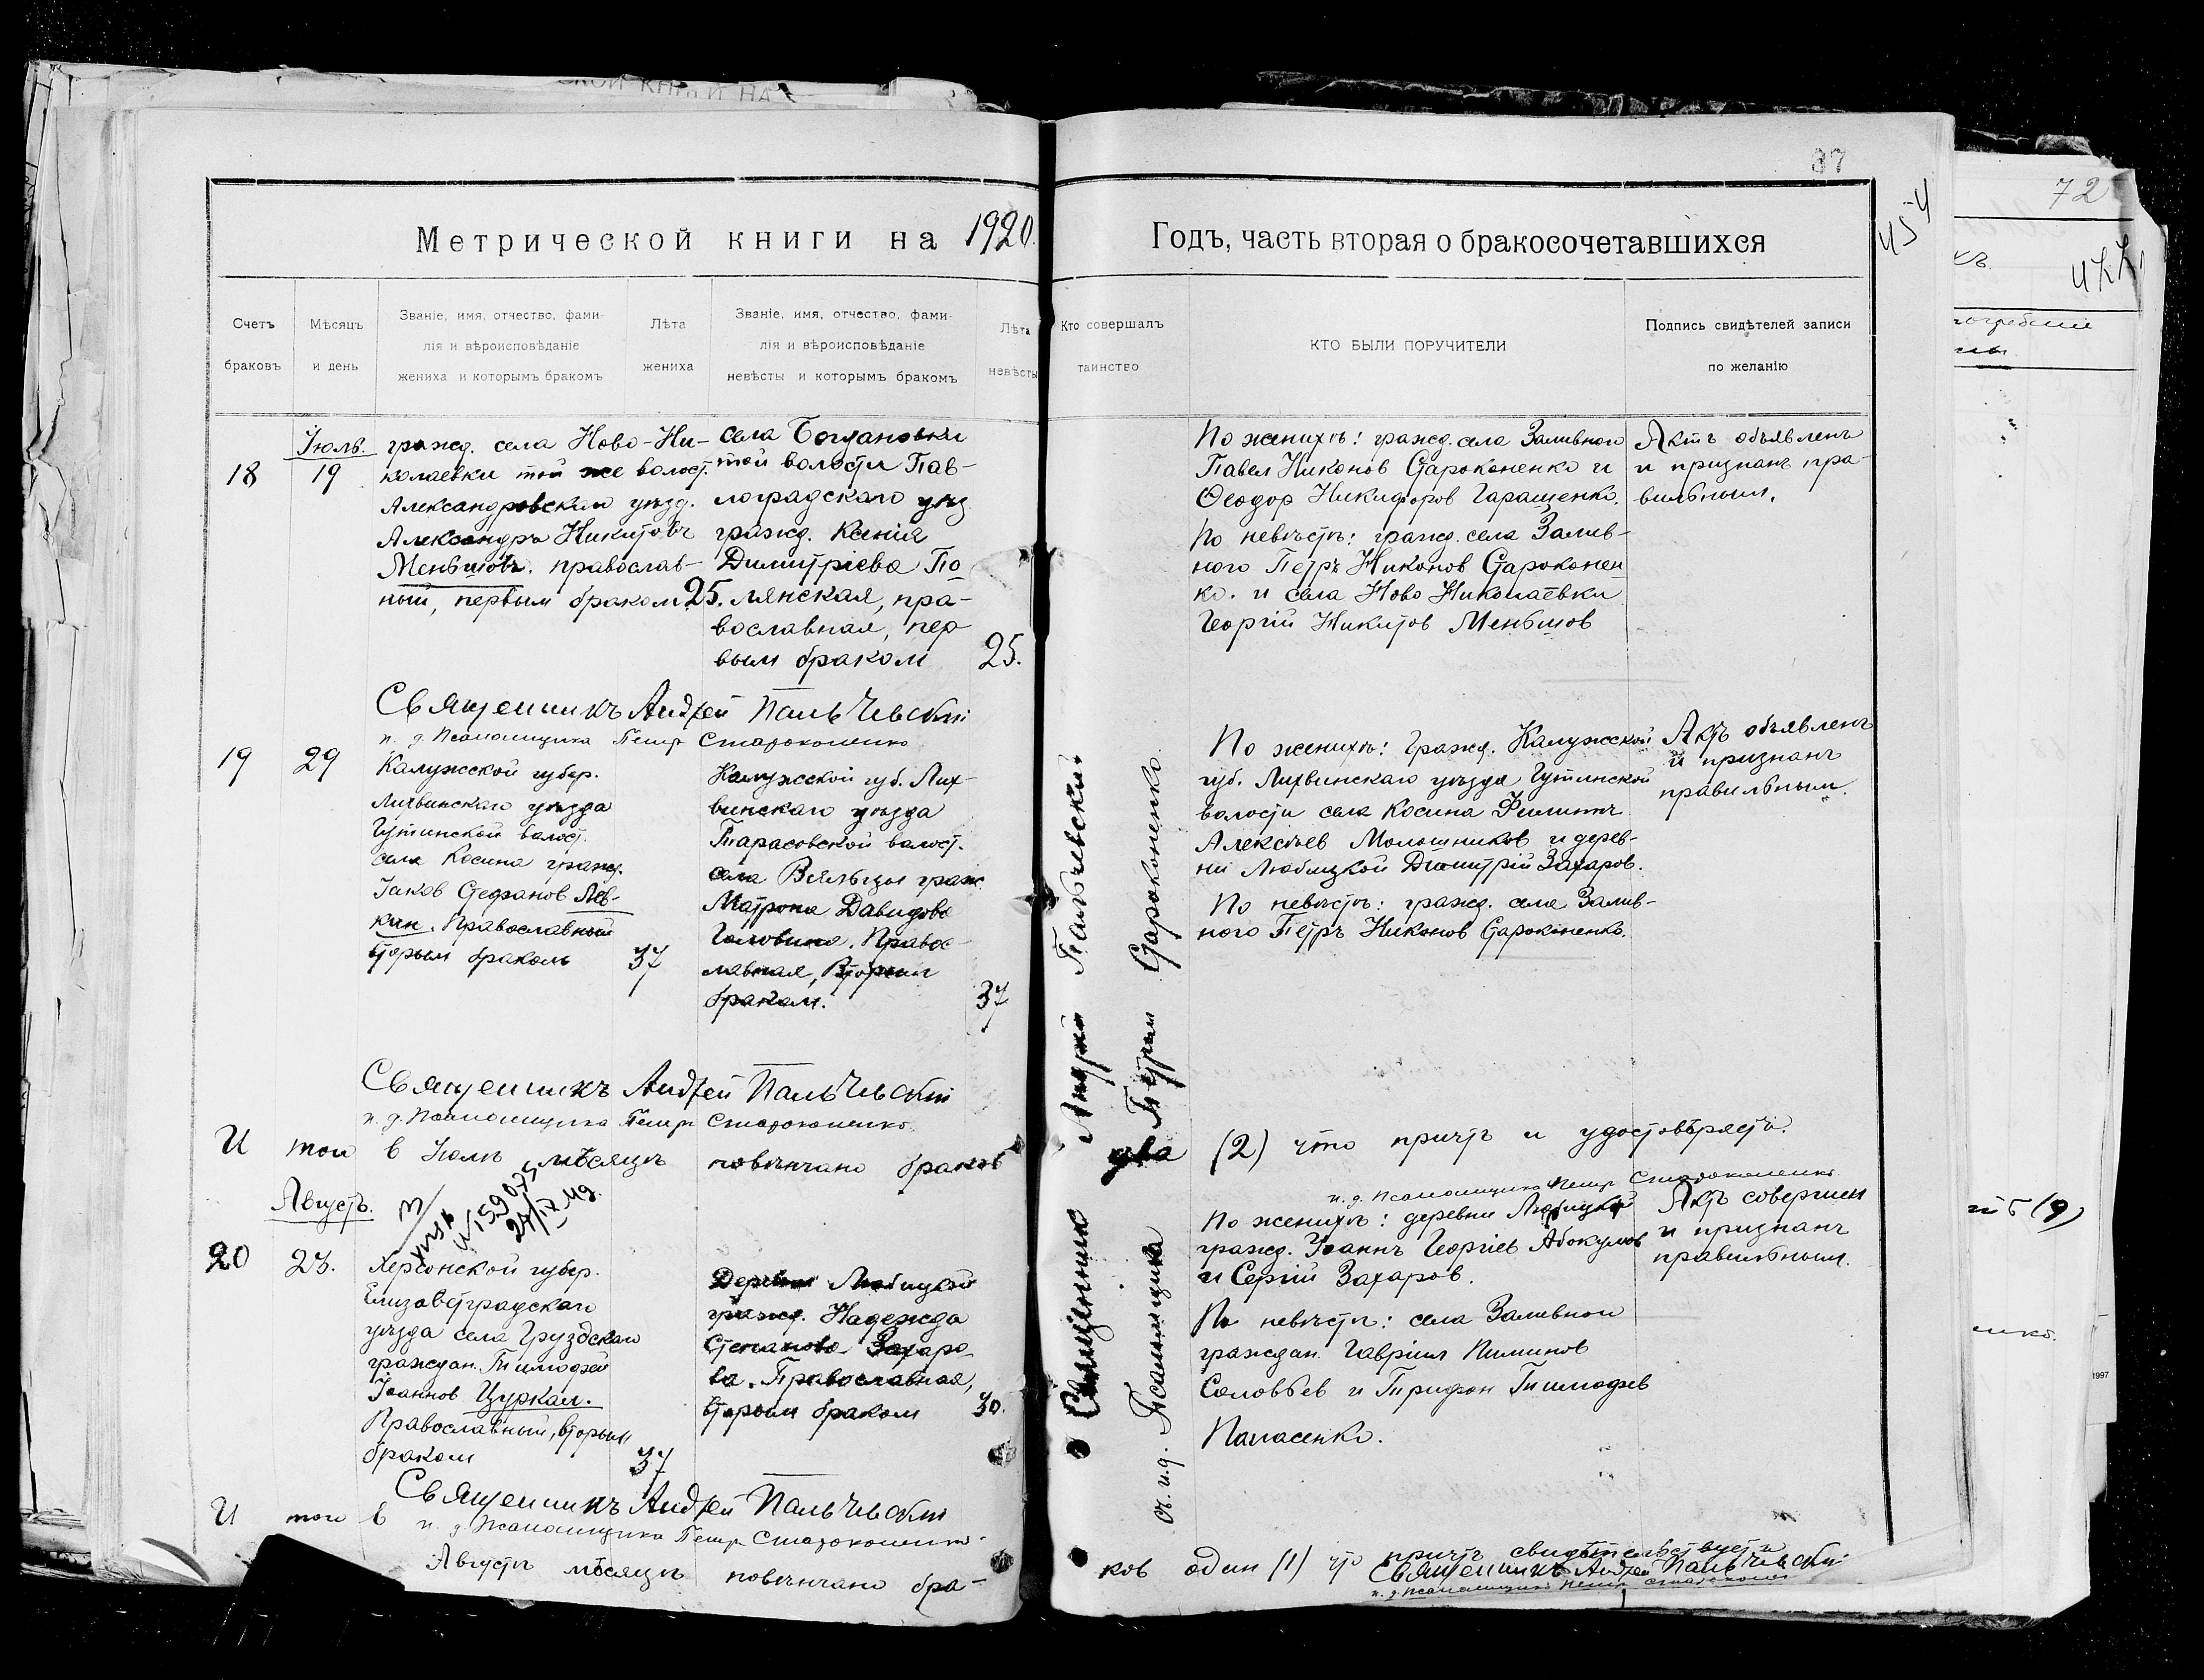 87
72
454
Метрической книги на 1920.
Годъ, часть вторая о бракосочетавшихся
Счетъ
браковъ
Мѣсяцъ
и день
Званіе, имя, отчество, фами-
лія и вѣроисповѣданіе
жениха и которымъ бракомъ
Лѣта
жениха
Званіе, имя, отчество, фами-
лія и вѣроисповѣданіе
невѣсты и которымъ бракомъ
Лѣта
невѣсты
Кто совершалъ
таинство
КТО БЫЛИ ПОРУЧИТЕЛИ
Подпись свидѣтелей записи
по желанію
18
Іюль.
19
гражд. села Ново-Ни-
колаевки той же волост.
Александровскаго уѣзд.
Александръ Никитовъ
Меньшовъ. православ-
ный, первым браком.
25.
села Богдановки
той волости Пав-
лоградскаго уѣз
гражд. Ксенія
Димитріева По
лянская, пра-
вославная, пер
вым браком
25.
По женихѣ: гражд. села Заливного
Павел Никонов Староконенко и
Ѳеодор Никифоров Гаращенко.
По невѣстѣ: гражд. села Залив-
ного Петръ Никонов Староконен
ко. и села Ново Николаевки
Георгій Никитов Меньшов
Актъ объявленъ
и признанъ пра-
вильным.
Священникъ Андрей Пальчевскій
и. д. Псаломщика Петр Староконенко
19
29
Калужской губер.
Лихвинскаго уѣзда
Гутинской волост.
села Косина гражд.
Іаков Стефанов Лев-
кин. Православный
вторым браком
37
Калужской губ. Лих-
винскаго уѣзда
Тарасовской волост.
села Вяльцы граж.
Матрона Давидова
Головина. Правос-
лавная, Вторым
браком.
37
По женихѣ: гражд. Калужской
губ. Лихвинскаго уѣзда Гутинской
волости села Косина Филиппъ
Алексѣев Молошников и дерев-
ни Любицкой Димитрій Захаров.
По невѣстѣ: гражд. села Залив-
ного Петръ Никонов Староконенко.
Актъ объявленъ
и признанъ
правильным.
Священникъ Андрей Пальчевскій
и. д. Псаломщика Петр Староконенко
Итого в Іюлѣ мѣсяцѣ повѣнчано браков
два (2) что причтъ и удостовѣряетъ.
и. д. Псаломщика Петр Староконенко
Священник Андрей Пальчевскій
и. д. Псаломщика Петръ Староконенко
Августъ.
20
23.
Херсонской губер.
Елизаветградскаго
уѣзда села Груздскаго
граждан. Тимофей
Іоаннов Цуркал.
Православный, вторым
браком
37
Деревни Любицкой
гражд. Надежда
Степанова Захаро-
ва. Православная,
вторым браком
30.
По женихѣ: деревни Любицкой
гражд. Іоаннъ Георгіев Абокумов
и Сергій Захаров.
По невѣстѣ: села Заливного
граждан. Гавріил Пиминов
Соловьев и Трифон Тимофеев
Папасенко.
Актъ совершен
и признанъ
правильным.
Священникъ Андрей Пальчевскій
и. д. Псаломщика Петр Староконенко
Итого в
Августѣ мѣсяцѣ повѣнчано бра-
ков один (1) что причтъ свидѣтельствуетъ
Священникъ Андрей Пальчевскій
и. д. Псаломщика Петр Староконенко
1997